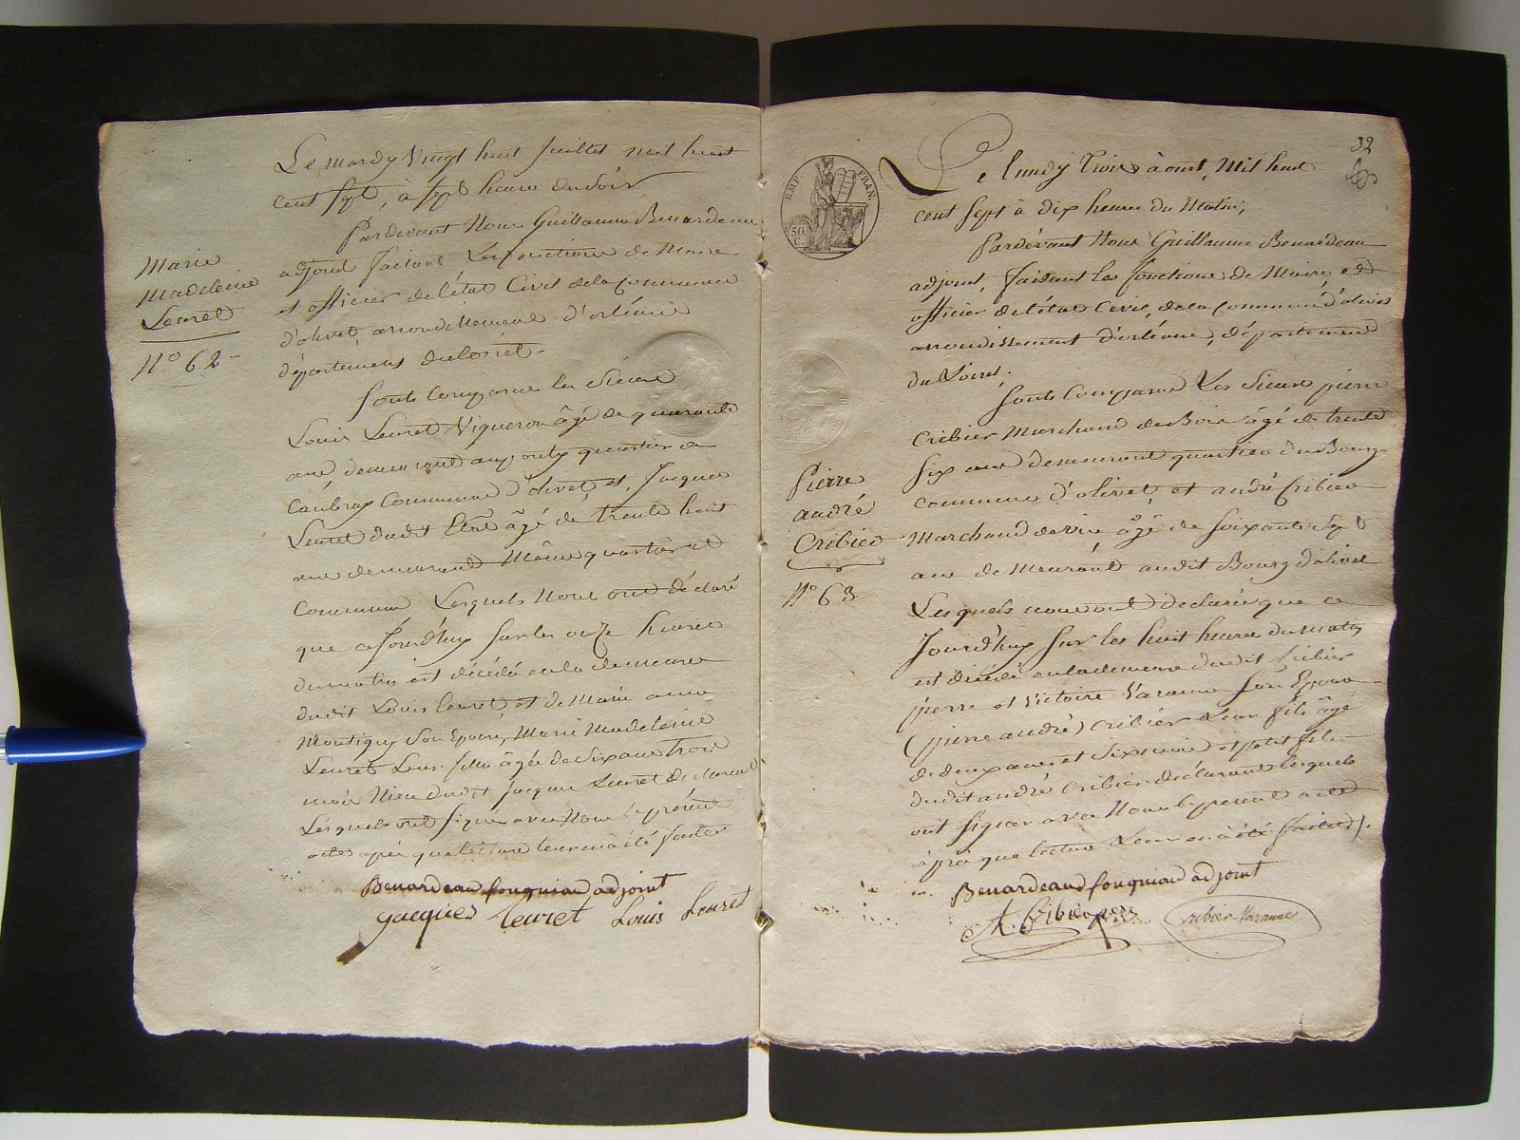 Le mardy Vingt huit Juillet mil huit
cent sept, a sept heure du Soir
Pardevant Nous Guillaume Benardeau
adjoint faisant Les fonctions de Maire
et officier de l'état Civil de la Commune
d'olivet, arrondissement d'orléans
département du loiret.
Marie
Madeleine
Leuret
N° 62
Sont Comparus les Sieurs
Louis Leuret Vigneron âgé de quarante
ans demeurant quartier de
Caubray Commune d'olivet, et Jacques
Leuret âgé de trente huit
ans demeurant Même quartier et
Commune Lesquels Nous ont déclaré
que ce Jourd'huy sur les onze heures
du matin est décédé en la demeure
dudit Louis leuret et de Marie anne
Montigny Son Epouse, Marie Madeleine
Leuret Leur fille âgée de Six ans trois
mois Niece dudit Jacques Leuret
Lesquels ont signé avec Nous le présent
acte après que lecture leur en a été faite
Benardeau fougniau adjoint
Jacques Leuret Louis Leuret
32
EMP. FRAN.
50
C.
Le lundy Trois àoust, Mil huit
cent Sept à dix heures du Matin,
Pardevant Nous Guillaume Benardeau
adjoint, faisant les fonctions de Maire, et
officier de l'état Civil, de la Commune d'olivet
arrondissement d'orléans, département
du Loiret.
Sont Comparus Les Sieurs pierre
Cribier Marchand de Bois âgé de trente
Six ans demeurant quartier du Bourg
commune d'olivet, et andré Cribier
Marchand de vin âgé de soixante Sept
ans demeurant audit Bourg d'olivet
Pierre
andré
Cribier
N° 63
Lesquels nous ont déclaré que ce
Jourd'huy sur les huit heures du matin
est décédé en la demeure dudit Cribier
pierre et Victoire Varanne Son Epouse
(pierre andré) Cribier Leur fils âgé
de deux ans et Six mois et petit fils
dudit andré Cribier déclarant lesquels
ont signer avec Nous le present acte
après que lecture Leur en à été faite
Benardeau fougniau adjoint
A. Cribier Cribier Varanne